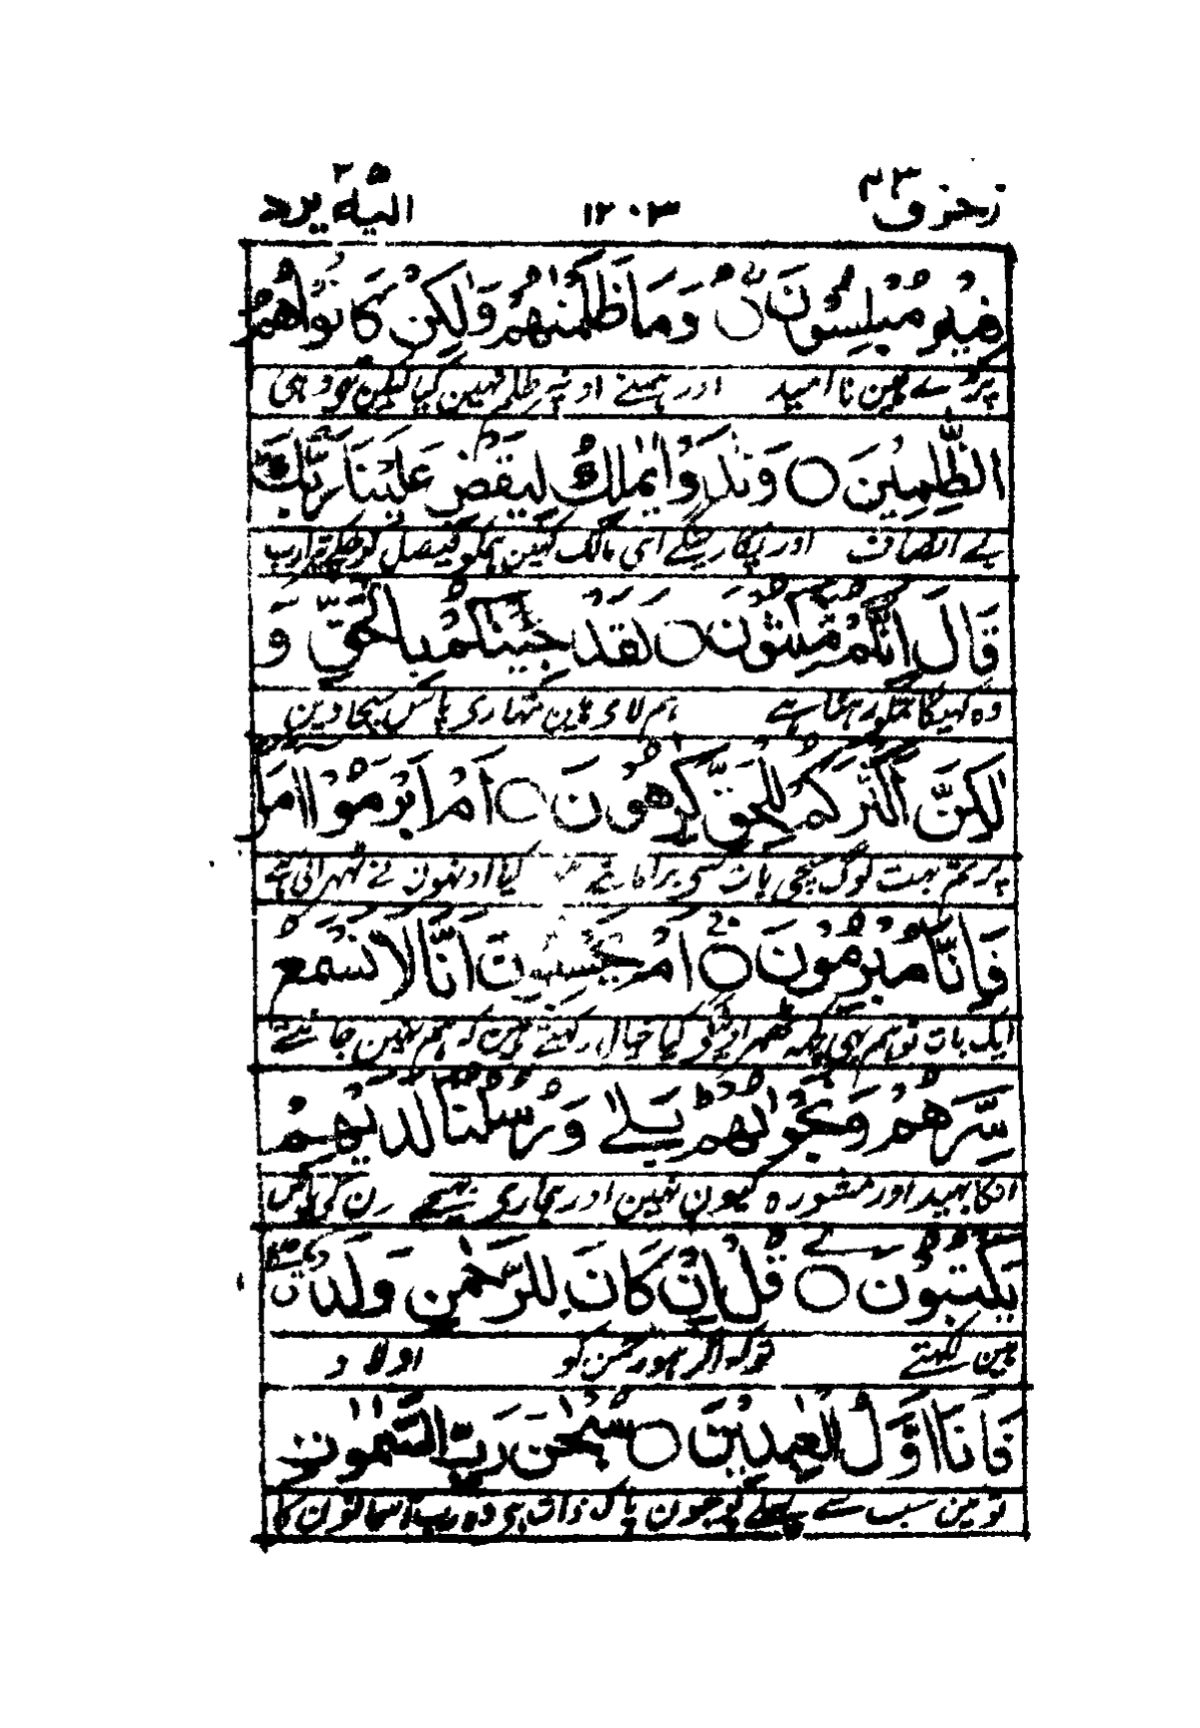 زخرف ۴۳
۱۲۰۳
الیه یرد ۲۵
فِيْهِ مُبْلِسُوْنَ ○ وَمَا ظَلَمْنٰهُمْ وَلٰكِنْ كَانُوْا هُمُ
پڑے ہین نا امید اور ہمنے اونپر ظلم نہین کیا لیکن تھے وہی
الظّٰلِمِيْنَ ○ وَنَادَوْا يٰمٰلِكُ لِيَقْضِ عَلَيْنَا رَبُّكَ
بے انصاف اور پکارینگے ای مالک کہین ہمکو فیصل کر چکے تیرا رب
قَالَ اِنَّكُمْ مّٰكِثُوْنَ ○ لَقَدْ جِئْنٰكُمْ بِالْحَقِّ وَ
وہ کہیگا تمکو رہنا ہے ہم لائے ہین تمہاری پاس سچا دین
لٰكِنَّ اَكْثَرَكُمْ لِلْحَقِّ كٰرِهُوْنَ ○ اَمْ اَبْرَمُوْا اَمْرًا
پر تم بہت لوگ سچی بات سی برا مانتے کیا اونہون نے ٹہرائی ہے
فَاِنَّا مُبْرِمُوْنَ ○ اَمْ يَحْسَبُوْنَ اَنَّا لَا نَسْمَعُ
ایک بات تو ہم بھی کچھ ٹھہراوینگے کیا خیال رکھتے ہین کہ ہم نہین جانتے
سِرَّهُمْ وَنَجْوٰىهُمْ بَلٰى وَرُسُلُنَا لَدَيْهِمْ
انکا بہید اور مشورہ کیون نہین اور ہماری بھیجے ان کی پاس
يَكْتُبُوْنَ ○ قُلْ اِنْ كَانَ لِلرَّحْمٰنِ وَلَدٌ
ہین لکہتے تو کہ اگر ہو رحمٰن کو اولاد
فَاَنَا اَوَّلُ الْعٰبِدِيْنَ ○ سُبْحٰنَ رَبِّ السَّمٰوٰتِ
تو مین سب سے پہلے پوجون پاک ذات ہی وہ رب آسمانون کا